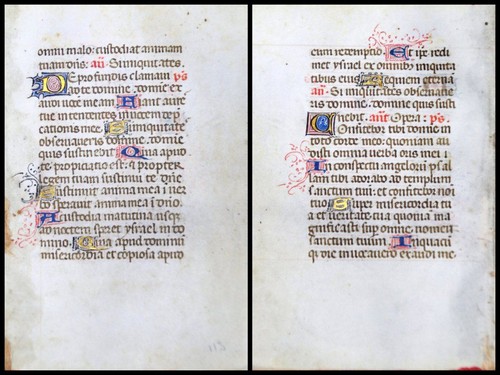 omni malo: custodiat animam
tuam dns. añ. Si iniquitates.
De profundis clamaui ps
ad te domine: domine ex
audi uocem meam. Fiant aure
tue intendentes: in uocem depre
cationis mee. Si iniquitates
obseruaueris domine: domine
quis sustinebit. Quia apud
te propiciatio est: & propter
legem tuam sustinui te dñe.
Sustinuit anima mea i uer
bo eius: sperauit anima mea i dño.
A custodia matutina usq;
ad noctem: speret ysrael in do
mino. Quia apud dominum
misericordia: et copiosa apud
eum redemptio. Et ipe redi
met ysrael: ex omnibus iniquita
tibus eius. Requiem eternā
añ. Si iniquitates obseruaue
ris domine: domine quis susti
nebit. ant Opera: ps
Confitebor tibi domine in
toto corde meo: quoniam au
disti omnia uerba oris mei.
In conspectu angelorum psal
lam tibi: adorabo ad templum
sanctum tuū: et confitebor nomi
tuo. Super misericordia tu
a et ueritate tua: quoniā ma
gnificasti sup omne, nomen
sanctum tuum. In quacū
q; die inuocauero te exaudi me.